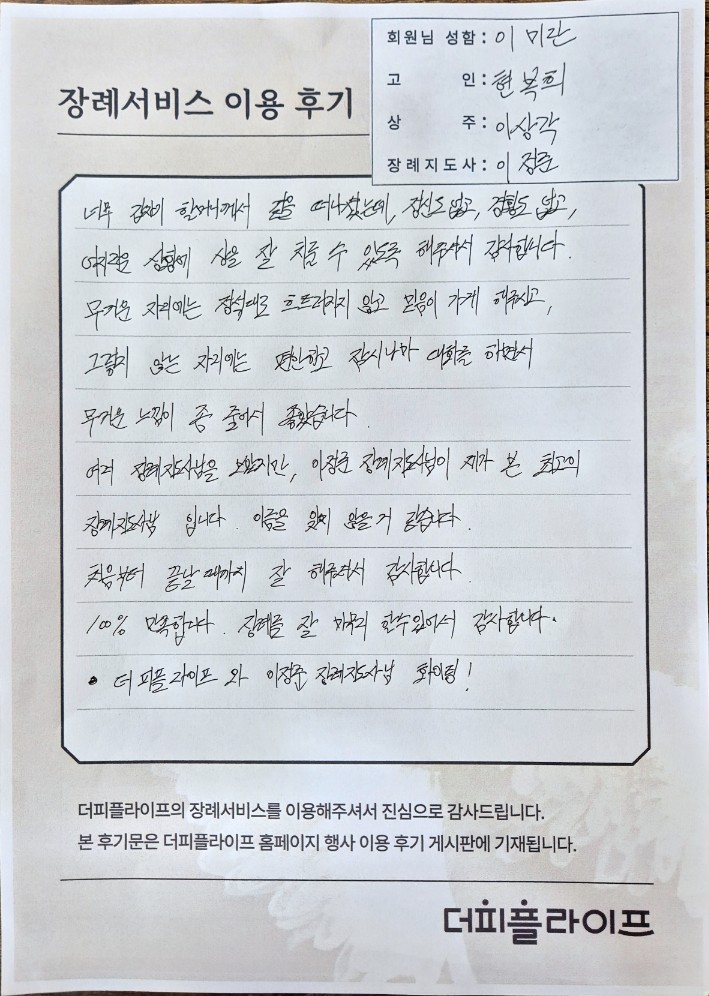 회원님 성함: 이미란
고 인: 현복희
상 주: 이상각
장례지도사: 이정준
장례서비스 이용 후기
너무 갑자기 할머니께서 길을 떠나셨는데, 정신도 없고, 경황도 없고,
어지러운 상황에 상을 잘 치를 수 있도록 해주셔서 감사합니다.
무거운 자리에는 정석대로 흐트러지지 않고 믿음이 가게 해주시고,
그렇지 않는 자리에는 편안하고 잠시나마 대화를 하면서
무거운 느낌이 좀 줄어서 좋았습니다.
여러 장례지도사님을 보았지만, 이정준 장례지도사님이 제가 본 최고의
장례지도사님 입니다. 이름을 잊지 않을거 같습니다.
처음부터 끝날때까지 잘 해주셔서 감사합니다.
100% 만족합니다. 장례를 잘 마무리 할수있어서 감사합니다.
• 더피플라이프 와 이정준 장례지도사님 화이팅!
더피플라이프의 장례서비스를 이용해주셔서 진심으로 감사드립니다.
본 후기문은 더피플라이프 홈페이지 행사 이용 후기 게시판에 기재됩니다.
더피플라이프